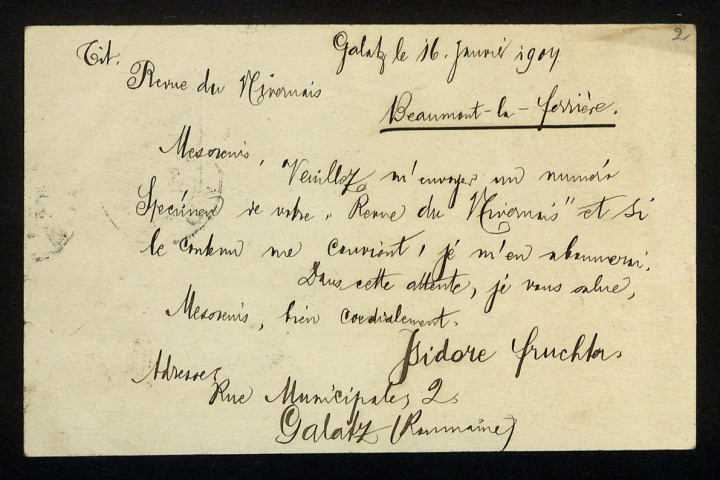 2
Tit. Galatz le 16. Janvié 1904
Revue du Nivernais
Beaumont-la-ferrière.
Messieurs, Veuillez m'envoyer un numéro
Specímen de votre „Revue du Nivernais" et si
le contenu me convient, je m'en abonnerai.
Dans cette attente, je vous salue,
Messieurs, bien cordialement.
Isidore Fruchter
Adresse:
Rue Municipale, 2.
Galatz (Roumaine)